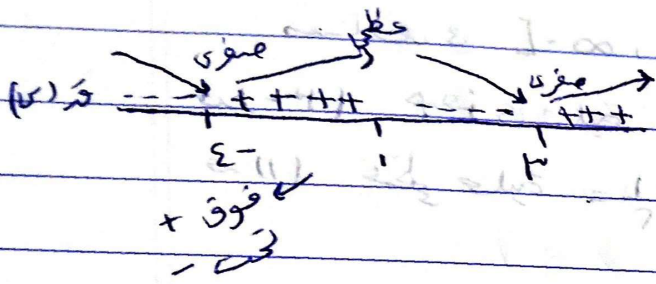 عظمى
صغرى صغرى
قَ(س) - - - - + + + + - - - - + + +
-٤ ١ ٣
فوق +
تحت -